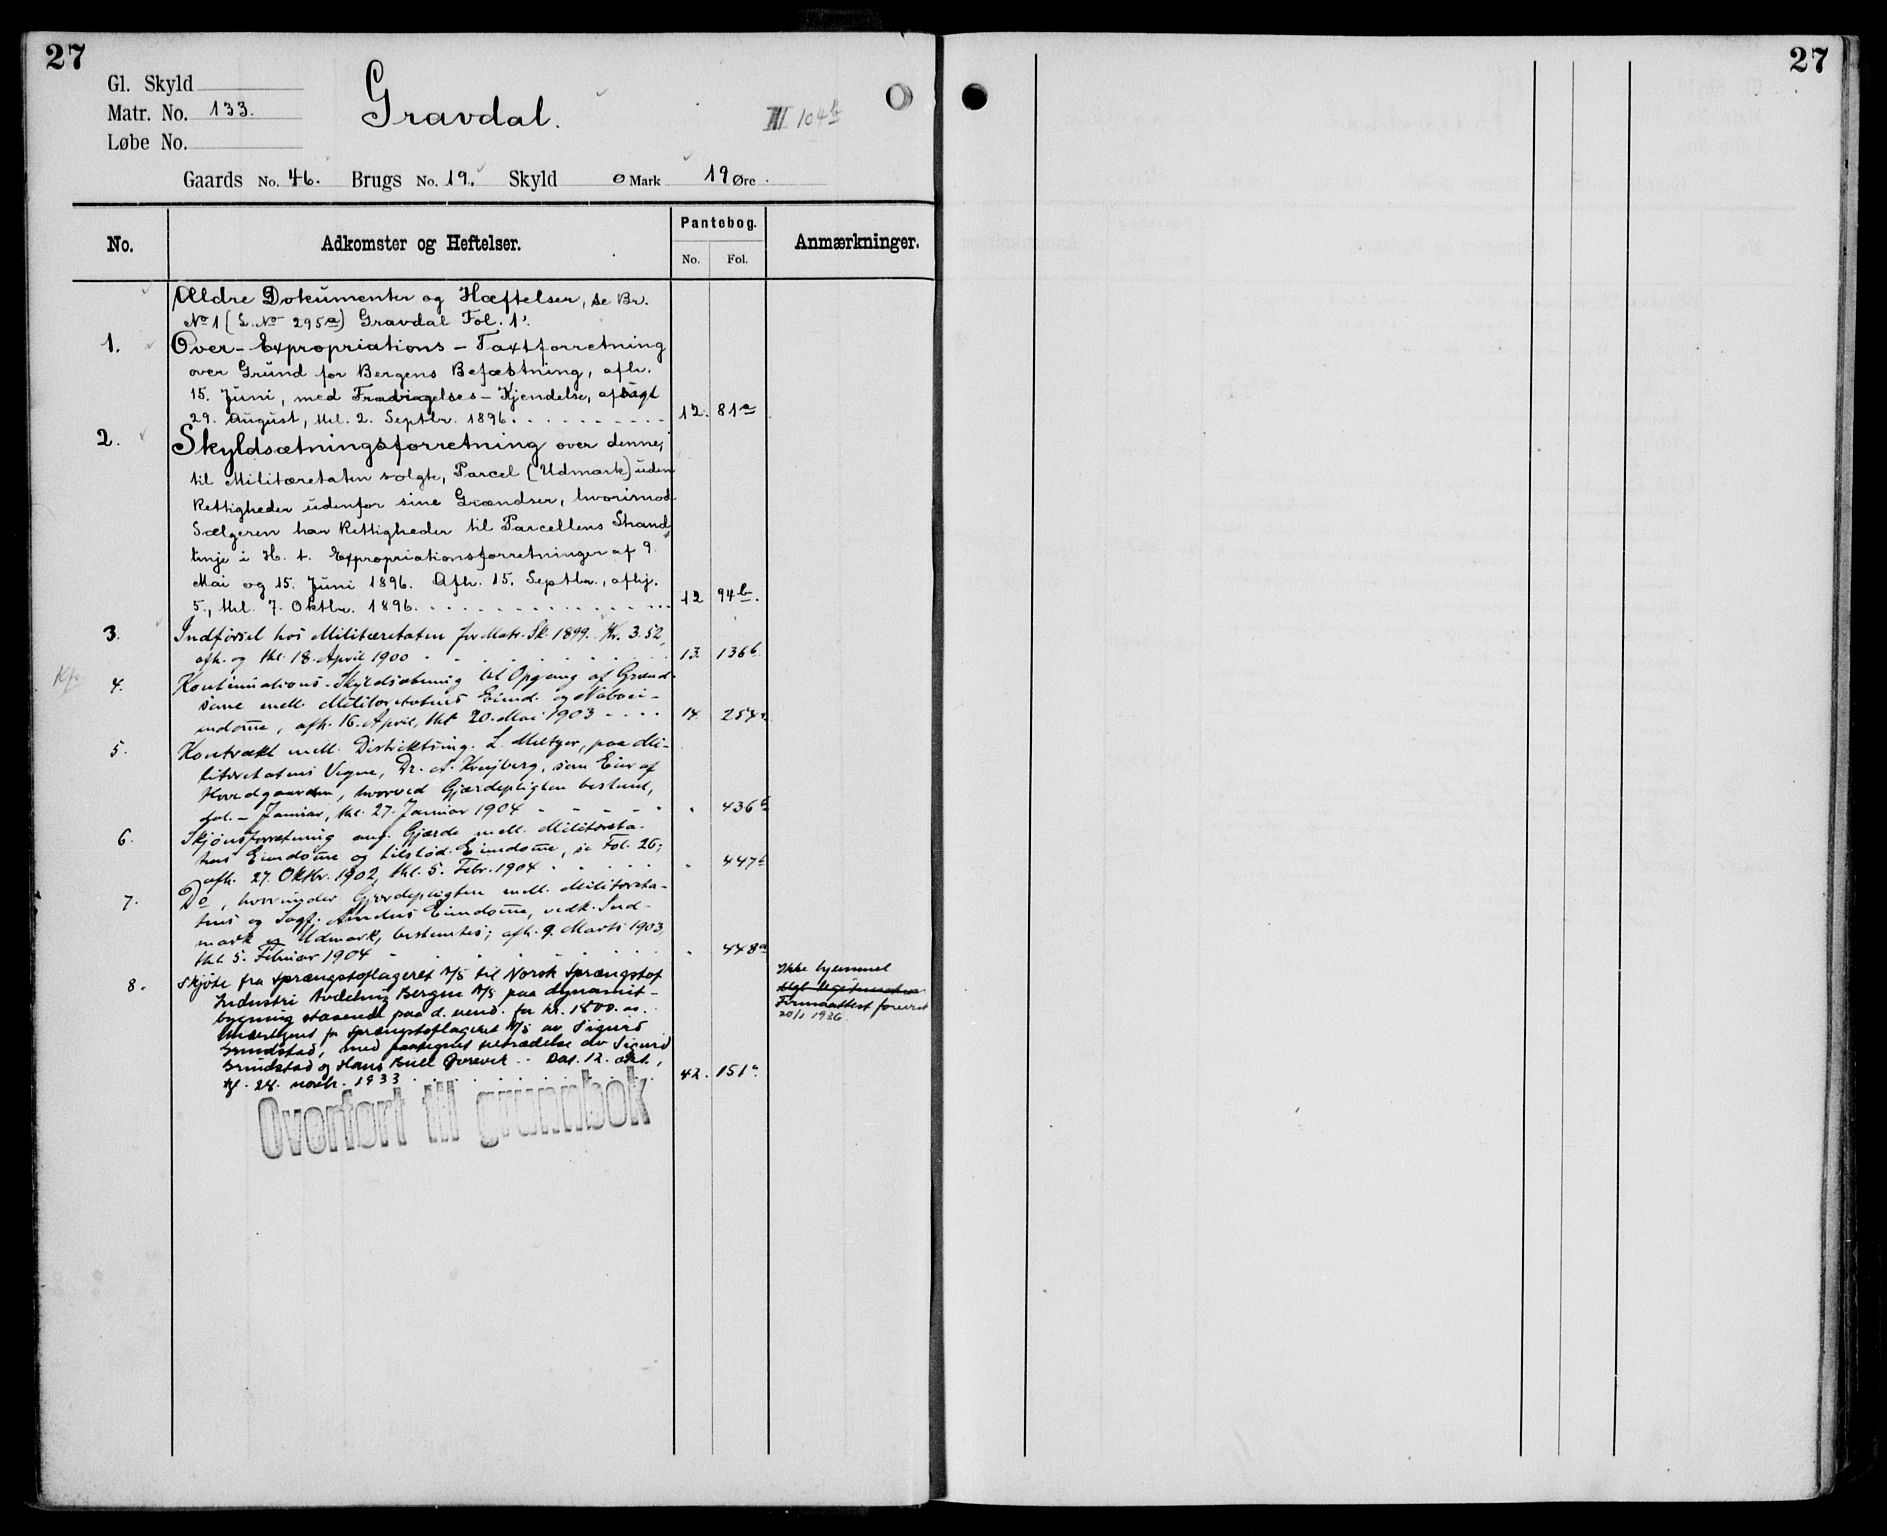 27
27
Gl. Skyld
Matr. No. 133.
Løbe No.
Gravdal.
III 104b
Gaards No. 46. Brugs No. 19. Skyld 0 Mark 19 Øre.
No.
Adkomster og Heftelser.
Pantebog.
No. Fol.
Anmærkninger.
Ældre Dokumenter og Hæftelser, se Br.
No 1 (L. No 295a) Gravdal Fol. 1.
1. Over-Expropriations-Taxtforretning
over Grund for Bergens Befæstning, afh.
15. Juni, med Fravigelses-Kjendelse, afsagt
29. August, thl. 2. Septbr. 1896. 12. 81a
2. Skyldsætningsforretning over denne,
til Militæretaten solgte, Parcel (Udmark) uden
Rettigheder udenfor sine Grændser, hvorimod
Sælgeren har Rettigheder til Parcellens Strand-
linje i H. t. Expropriationsforretninger af 9.
Mai og 15. Juni 1896. Afh. 15. Septbr., afhj.
5., thl. 7. Oktbr. 1896. 12 94b.
3. Indførsel hos Militæretaten for Matr. Sk. 1899. Kr. 3.52,
afh. og thl. 18. April 1900 13. 136b
Kfr.
4. Kontinuations-Skyldsætning til Opgang af Grænd-
serne mell. Militæretatens Eiend. og Naboei-
endomme, afh. 16. April, thl. 20. Mai 1903 14 254a
5. Kontrakt mell. Distriktsing. L. Meltzer, paa Mi-
litæretatens Vegne, Dr. A. Kreyberg, som Eier af
Hovedgaarden, hvorved Gjærdepligten bestemt,
dat. – Januar, thl. 27. Januar 1904 " 436b
6. Skjønsforretning ang. Gjærde mell. Militæreta-
tens Eiendomme og tilstød. Eiendomme, se Fol. 26;
afh. 27. Oktbr. 1902, thl. 5. Febr. 1904 " 447b
7. Do, hvorunder Gjærdepligten mell. Militæreta-
tens og Sagf. Eiendomme, vedk. Ind-
mark og Udmark, bestemtes; afh. 9. Marts 1903,
thl. 5. Februar 1904 " 448a
8. Skjøte fra Sprængstoflageret A/S til Norsk Sprængstof
Industri Avdeling Bergen A/S paa dynamit-
bygning staaende paa d. eiend. for kr. 1800.
Undertegnet for Sprængstoflageret A/S av Sigurd
Grundstad, med paategnet tiltrædelse av Sigurd
Grundstad og Hans Bull Øvrevik. Dat. 12. okt.,
tgl. 24. novbr. 1933 42. 151a
Ikke hjemmel
Firmaattest forevist
20/1 1936
Overført til grunnbok